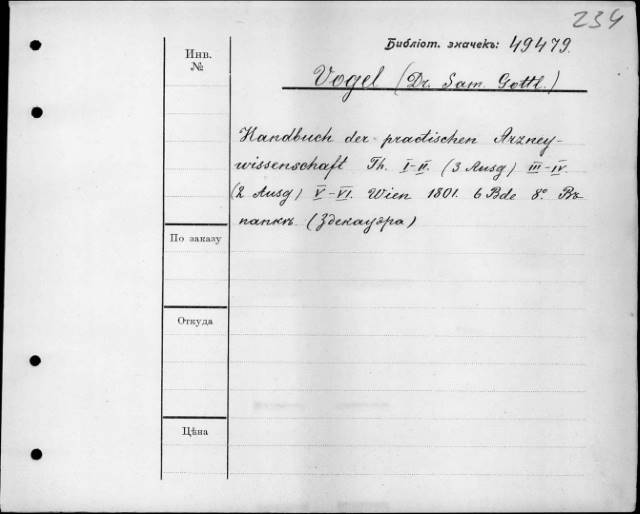 234
Библіот. значекъ: 49479.
Инв.
№
Vogel (Dr. Sam. Gottl.)
Handbuch der practischen Arzney-
wissenschaft Th. I-II. (3 Ausg) III-IV
(2 Ausg) V-VI. Wien 1801. 6 Bde 8° Въ
папкѣ. (Здекауэра)
По заказу
Откуда
Цѣна